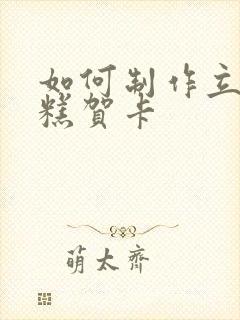 如何制作立
糕贺卡
萌太齐